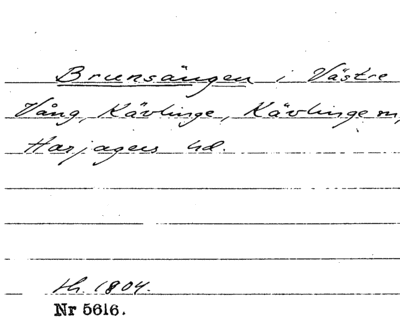 Brunsängen i Västre
Vång, Kävlinge, Kävlinge sn,
Harjagers hd.
th. 1804.
Nr 5616.